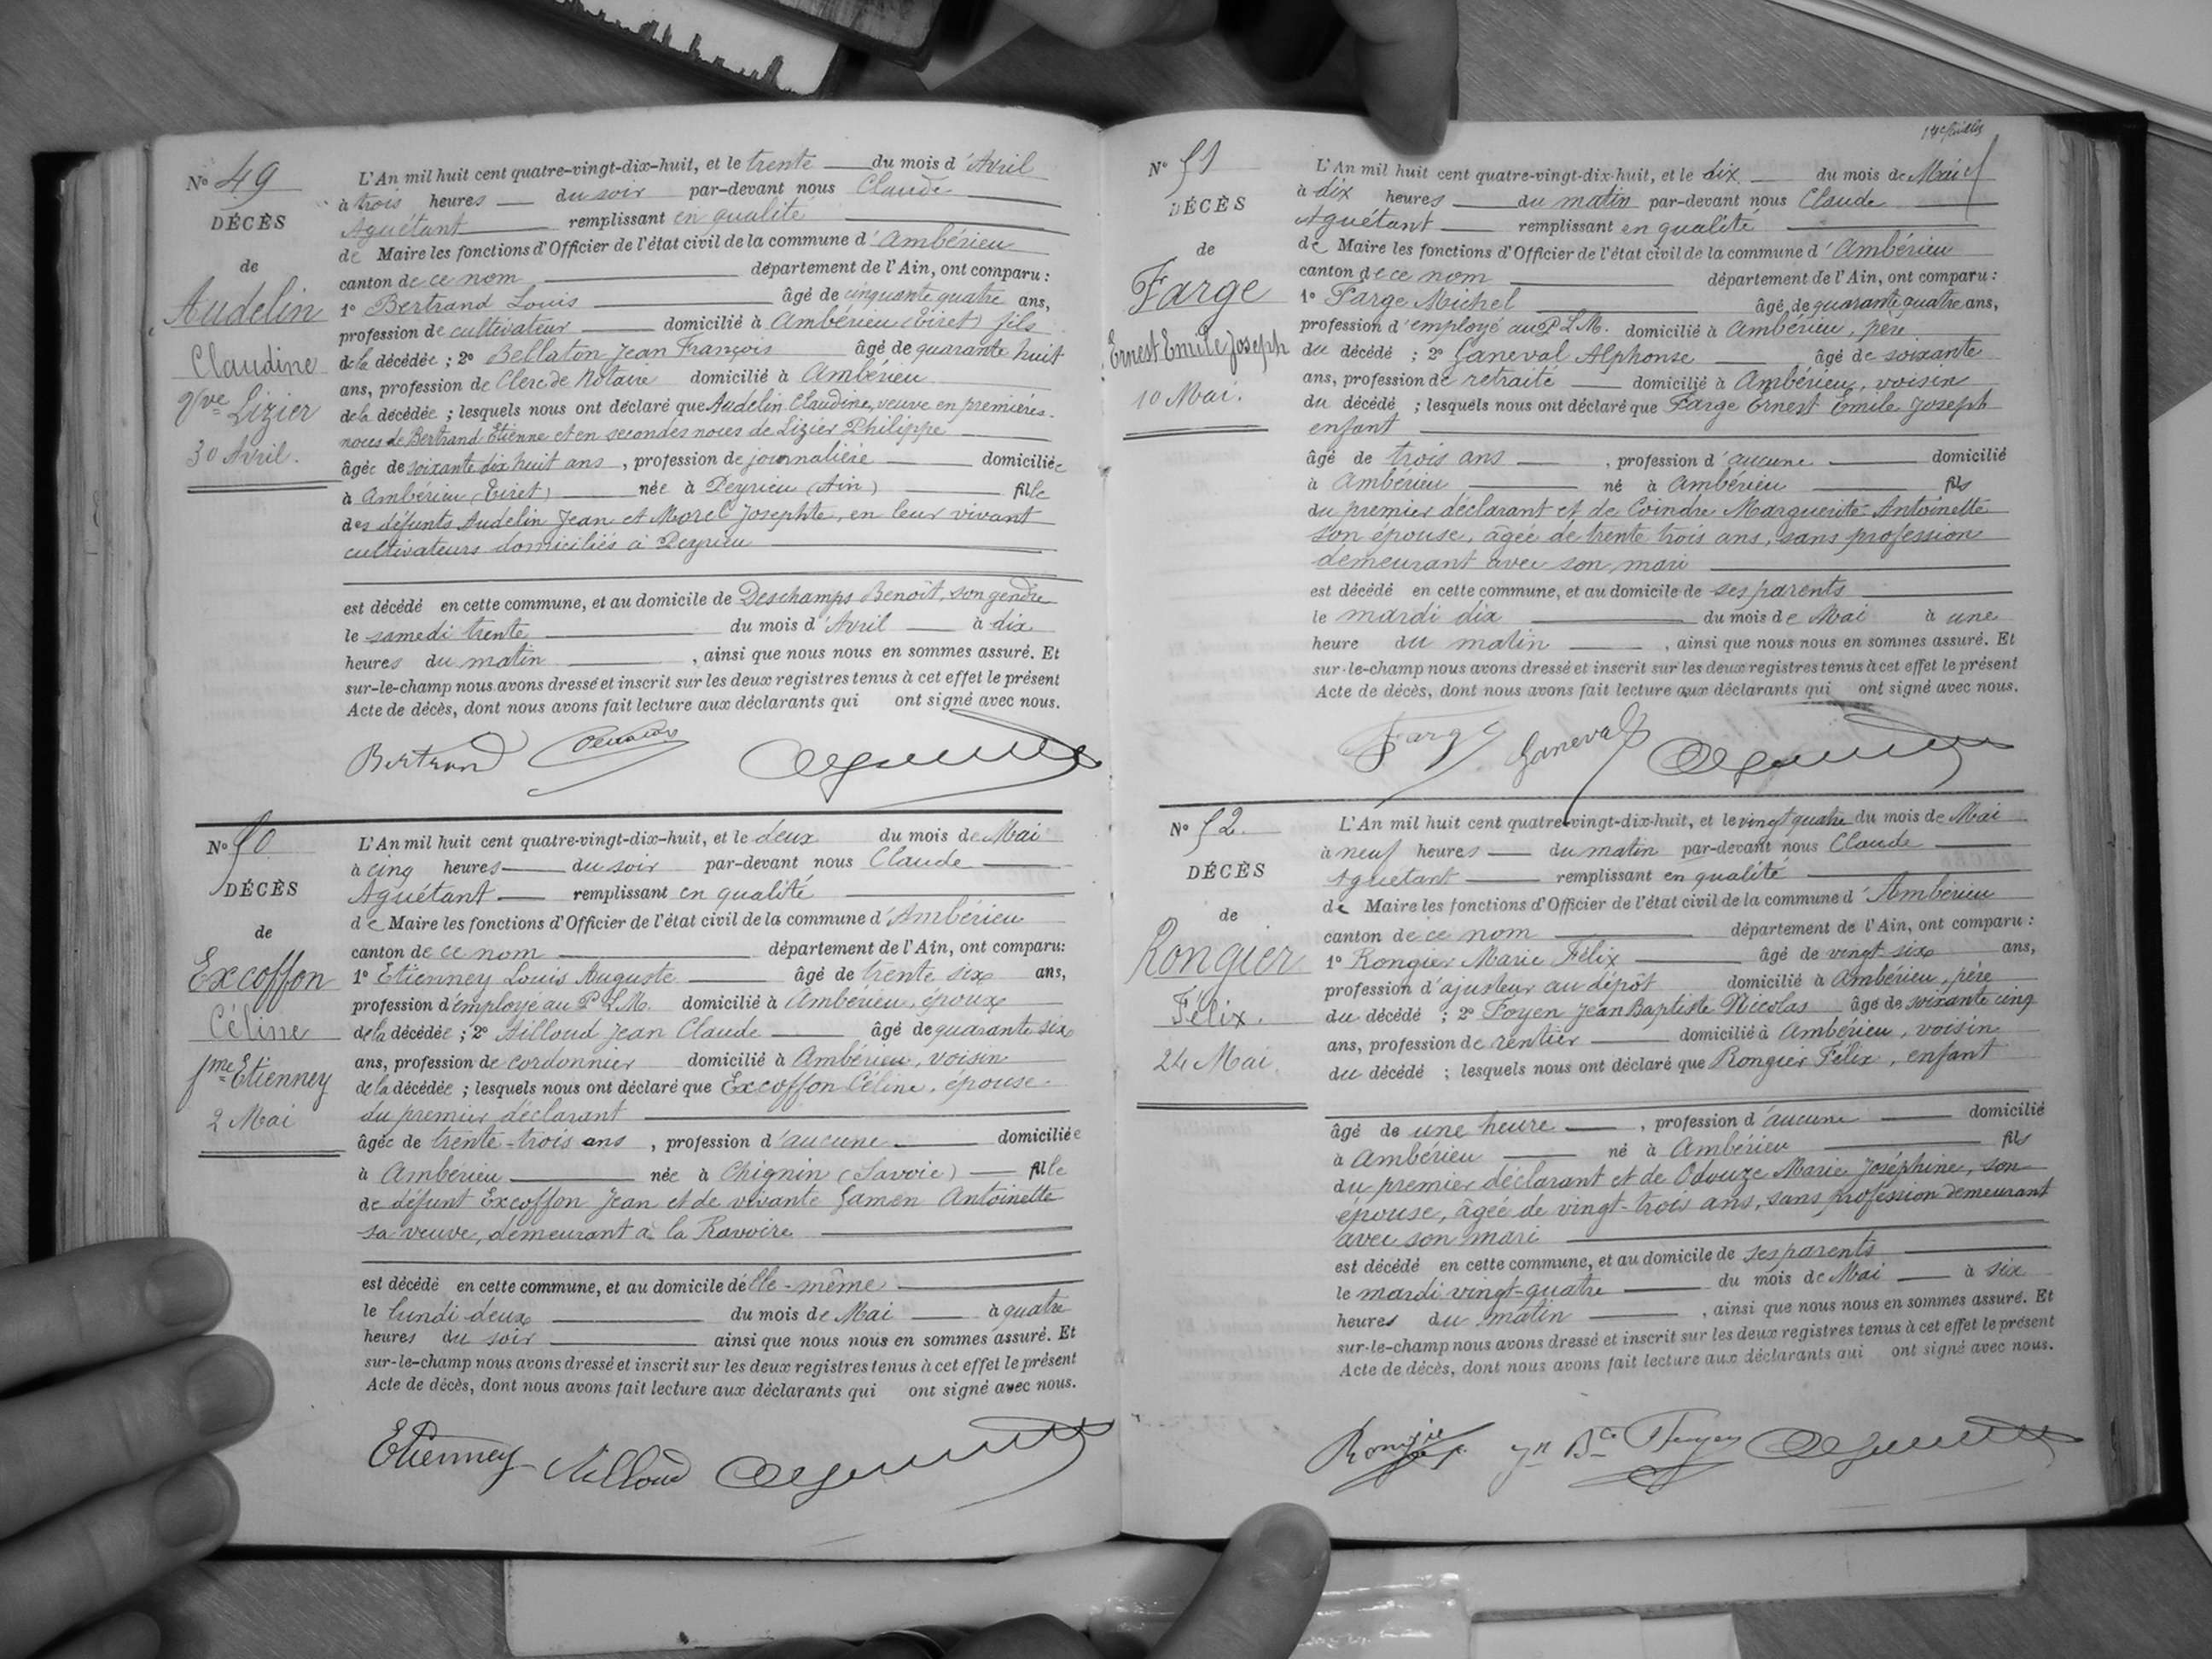 Nº 49
DÉCÈS
de
Audelin
Claudine
Vve Lizier
30 Avril.
L'An mil huit cent quatre-vingt-dix-huit, et le trente du mois d'Avril
à trois heures du soir par-devant nous Claude
Aguétant remplissant en qualité
de Maire les fonctions d'Officier de l'état civil de la commune d'Ambérieu
canton de ce nom département de l'Ain, ont comparu :
1º Bertrand Louis âgé de cinquante quatre ans,
profession de cultivateur domicilié à Ambérieu (Tiret) fils
de la décédée ; 2º Bellaton Jean François âgé de quarante huit
ans, profession de Clerc de Notaire domicilié à Ambérieu
de la décédée ; lesquels nous ont déclaré que Audelin Claudine, veuve en premières
noces de Bertrand Etienne et en secondes noces de Lizier Philippe
âgée de soixante dix huit ans, profession de journalière domiciliée
à Ambérieu (Tiret) née à Peyrieu (Ain) fille
des défunts Audelin Jean et Morel Josephte, en leur vivant
cultivateurs domiciliés à Peyrieu
est décédé en cette commune, et au domicile de Deschamps Benoît, son gendre
le samedi trente du mois d'Avril à dix
heures du matin, ainsi que nous nous en sommes assuré. Et
sur-le-champ nous avons dressé et inscrit sur les deux registres tenus à cet effet le présent
Acte de décès, dont nous avons fait lecture aux déclarants qui ont signé avec nous.
Bertrand
Nº 50
DÉCÈS
de
Excoffon
Céline
fme Etienney
2 Mai
L'An mil huit cent quatre-vingt-dix-huit, et le deux du mois de Mai
à cinq heures du soir par-devant nous Claude
Aguétant remplissant en qualité
de Maire les fonctions d'Officier de l'état civil de la commune d'Ambérieu
canton de ce nom département de l'Ain, ont comparu:
1º Etienney Louis Auguste âgé de trente six ans,
profession d'employé au P.L.M. domicilié à Ambérieu, époux
de la décédée ; 2º Ailloud Jean Claude âgé de quarante six
ans, profession de cordonnier domicilié à Ambérieu, voisin
de la décédée ; lesquels nous ont déclaré que Excoffon Céline, épouse
du premier déclarant
âgée de trente-trois ans, profession d'aucune domiciliée
à Ambérieu née à Chignin (Savoie) fille
de défunt Excoffon Jean et de vivante Gamen Antoinette
sa veuve, demeurant à la Ravoire
est décédé en cette commune, et au domicile d'elle-même
le lundi deux du mois de Mai à quatre
heures du soir ainsi que nous nous en sommes assuré. Et
sur-le-champ nous avons dressé et inscrit sur les deux registres tenus à cet effet le présent
Acte de décès, dont nous avons fait lecture aux déclarants qui ont signé avec nous.
Etienney Ailloud
Nº 51
DÉCÈS
de
Farge
Ernest Emile Joseph
10 Mai.
L'An mil huit cent quatre-vingt-dix-huit, et le dix du mois de Mai
à dix heures du matin par-devant nous Claude
Aguétant remplissant en qualité
de Maire les fonctions d'Officier de l'état civil de la commune d'Ambérieu
canton de ce nom département de l'Ain, ont comparu :
1º Farge Michel âgé de quarante quatre ans,
profession d'employé au P.L.M. domicilié à Ambérieu, père
du décédé ; 2º Ganeval Alphonse âgé de soixante
ans, profession de retraité domicilié à Ambérieu, voisin
du décédé ; lesquels nous ont déclaré que Farge Ernest Emile Joseph
enfant
âgé de trois ans, profession d'aucune domicilié
à Ambérieu né à Ambérieu fils
du premier déclarant et de Coindre Marguerite Antoinette
son épouse, âgée de trente trois ans, sans profession
demeurant avec son mari
est décédé en cette commune, et au domicile de ses parents
le mardi dix du mois de Mai à une
heure du matin, ainsi que nous nous en sommes assuré. Et
sur-le-champ nous avons dressé et inscrit sur les deux registres tenus à cet effet le présent
Acte de décès, dont nous avons fait lecture aux déclarants qui ont signé avec nous.
Farge Ganeval
Nº 52
DÉCÈS
de
Rongier
Félix.
24 Mai.
L'An mil huit cent quatre-vingt-dix-huit, et le vingt quatre du mois de Mai
à neuf heures du matin par-devant nous Claude
Aguétant remplissant en qualité
de Maire les fonctions d'Officier de l'état civil de la commune d'Ambérieu
canton de ce nom département de l'Ain, ont comparu :
1º Rongier Marie Félix âgé de vingt six ans,
profession d'ajusteur au dépôt domicilié à Ambérieu, père
du décédé ; 2º Foyen Jean Baptiste Nicolas âgé de soixante cinq
ans, profession de rentier domicilié à Ambérieu, voisin
du décédé ; lesquels nous ont déclaré que Rongier Félix, enfant
âgé de une heure, profession d'aucune domicilié
à Ambérieu né à Ambérieu fils
du premier déclarant et de Odouze Marie Joséphine, son
épouse, âgée de vingt-trois ans, sans profession demeurant
avec son mari
est décédé en cette commune, et au domicile de ses parents
le mardi vingt-quatre du mois de Mai à six
heures du matin, ainsi que nous nous en sommes assuré. Et
sur-le-champ nous avons dressé et inscrit sur les deux registres tenus à cet effet le présent
Acte de décès, dont nous avons fait lecture aux déclarants qui ont signé avec nous.
Rongier